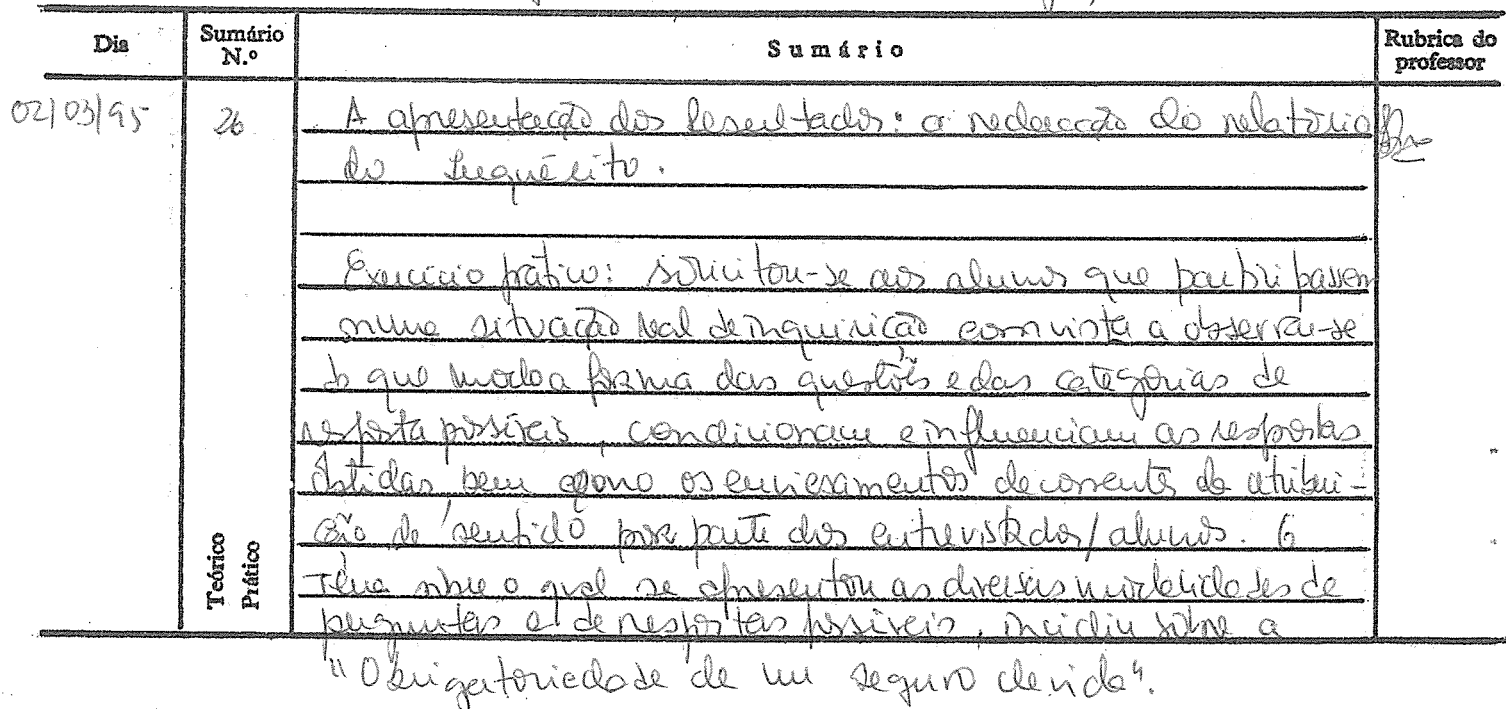 Dia
Sumário N.º
Sumário
Rubrica do professor
02/03/95
26
A apresentação dos Resultados: a redacção do relatório
do Inquérito.
Exercício prático: solicitou-se aos alunos que participassem
numa situação real de inquirição com vista a observar-se
de que modo a forma das questões e das categorias de
resposta possíveis, condicionam e influenciam as respostas
obtidas bem como os enviesamentos decorrentes da atribui-
ção de sentido por parte dos entrevistados/alunos. O
Tema sobre o qual se apresentou as diversas modalidades de
perguntas e de respostas possíveis, incidiu sobre a
"Obrigatoriedade de um seguro de vida".
Teórico
Prático